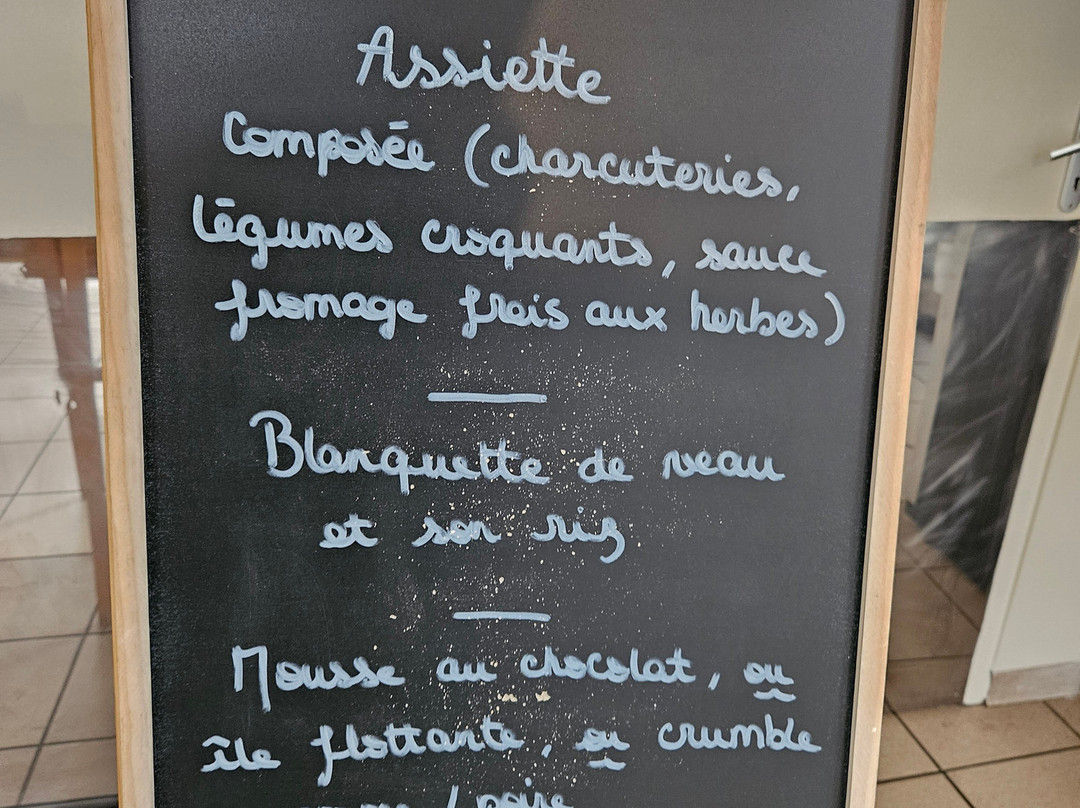 Assiette
Composée (charcuteries,
légumes croquants, sauce
fromage frais aux herbes)
Blanquette de veau
et son riz
Mousse au chocolat, ou
île flottante, ou crumble
/ poire